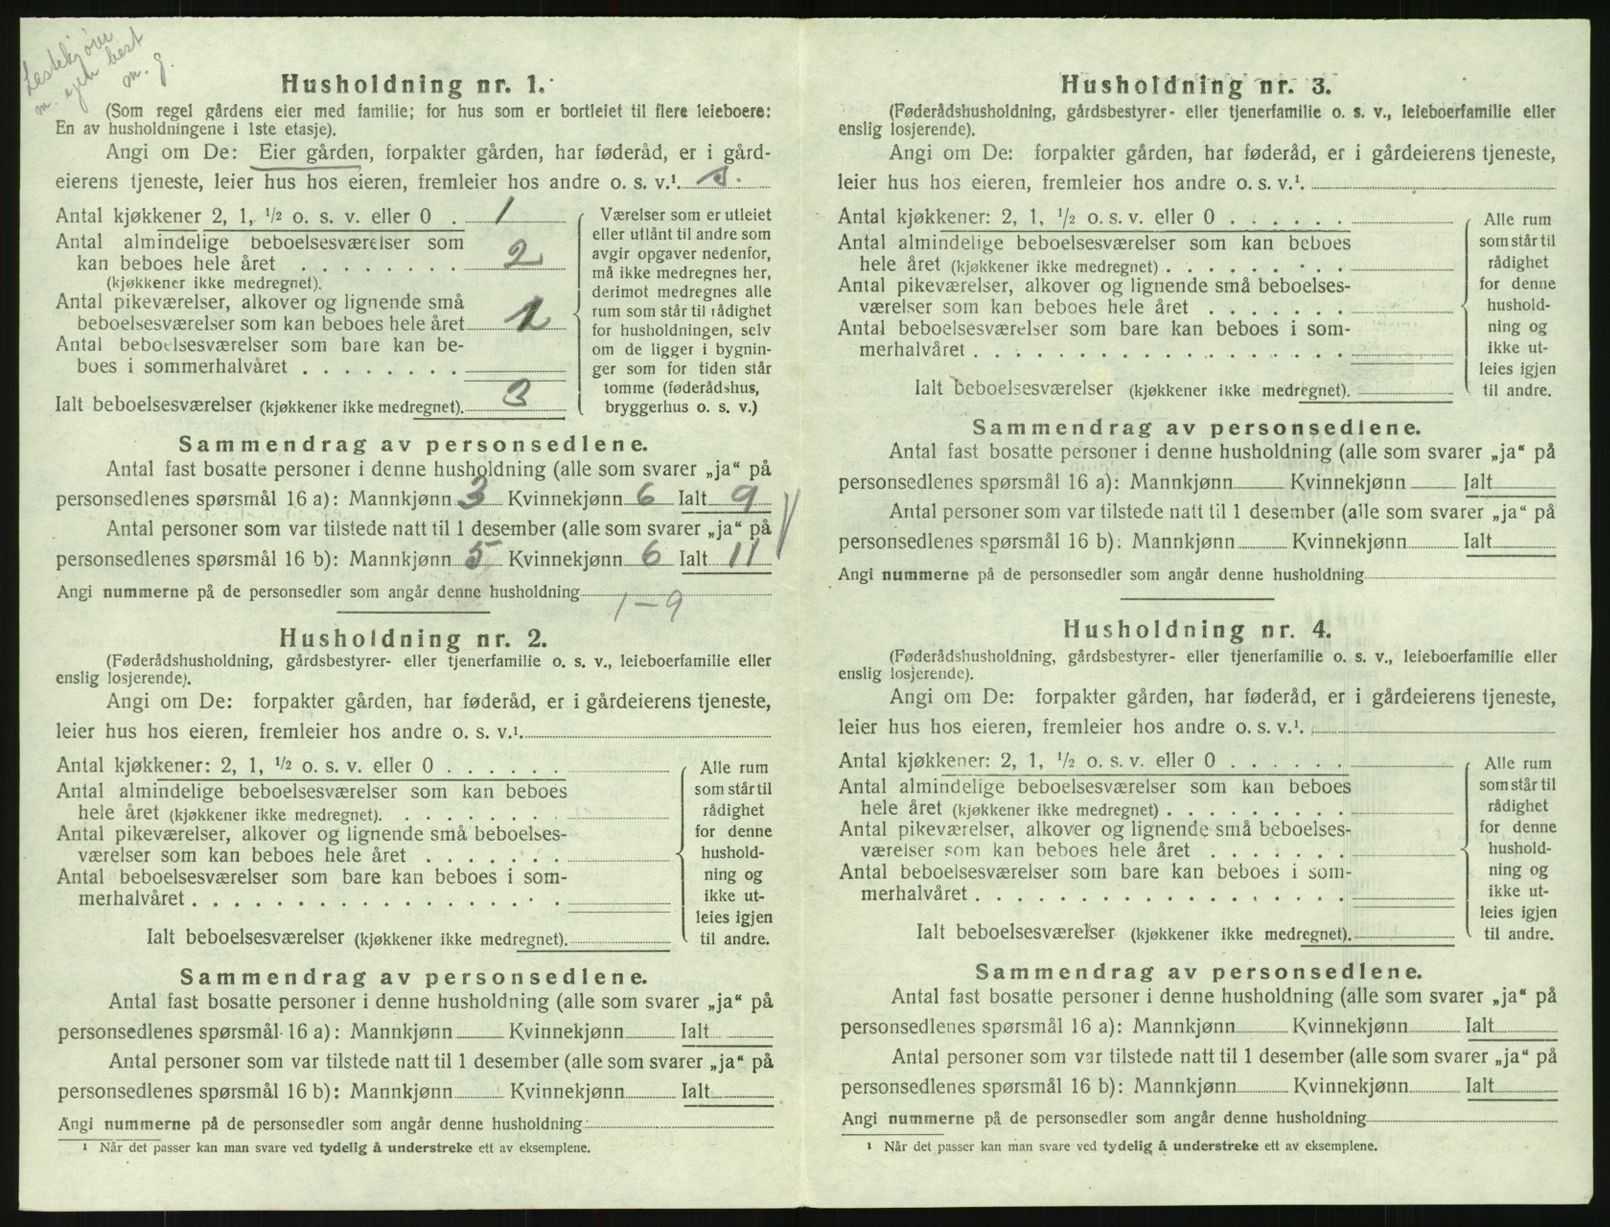 Lestekjører
m. egen hest
m. g.
Husholdning nr. 1.
(Som regel gårdens eier med familie; for hus som er bortleiet til flere leieboere:
En av husholdningene i 1ste etasje).
Angi om De: Eier gården, forpakter gården, har føderåd, er i gård-
eierens tjeneste, leier hus hos eieren, fremleier hos andre o. s. v.¹. s.
Antal kjøkkener 2, 1, ½ o. s. v. eller 0 . 1
Antal almindelige beboelsesværelser som
kan beboes hele året . . . . . . . . 2
(kjøkkener ikke medregnet).
Antal pikeværelser, alkover og lignende små
beboelsesværelser som kan beboes hele året 1
Antal beboelsesværelser som bare kan be-
boes i sommerhalvåret . . . . . . .
Ialt beboelsesværelser (kjøkkener ikke medregnet). 3
Værelser som er utleiet
eller utlånt til andre som
avgir opgaver nedenfor,
må ikke medregnes her,
derimot medregnes alle
rum som står til rådighet
for husholdningen, selv
om de ligger i bygnin-
ger som for tiden står
tomme (føderådshus,
bryggerhus o. s. v.)
Sammendrag av personsedlene.
Antal fast bosatte personer i denne husholdning (alle som svarer „ja“ på
personsedlenes spørsmål 16 a): Mannkjønn 3 Kvinnekjønn 6 Ialt 9
Antal personer som var tilstede natt til 1 desember (alle som svarer „ja“ på
personsedlenes spørsmål 16 b): Mannkjønn 5 Kvinnekjønn 6 Ialt 11
Angi nummerne på de personsedler som angår denne husholdning 1-9
Husholdning nr. 2.
(Føderådshusholdning, gårdsbestyrer- eller tjenerfamilie o. s. v., leieboerfamilie eller
enslig losjerende).
Angi om De: forpakter gården, har føderåd, er i gårdeierens tjeneste,
leier hus hos eieren, fremleier hos andre o. s. v.¹.
Antal kjøkkener: 2, 1, ½ o. s. v. eller 0 . . . . . .
Antal almindelige beboelsesværelser som kan beboes
hele året (kjøkkener ikke medregnet). . . . . . . .
Antal pikeværelser, alkover og lignende små beboelses-
værelser som kan beboes hele året . . . . . . .
Antal beboelsesværelser som bare kan beboes i som-
merhalvåret . . . . . . . . . . . . . . . . . .
Ialt beboelsesværelser (kjøkkener ikke medregnet).
Alle rum
som står til
rådighet
for denne
hushold-
ning og
ikke ut-
leies igjen
til andre.
Sammendrag av personsedlene.
Antal fast bosatte personer i denne husholdning (alle som svarer „ja“ på
personsedlenes spørsmål 16 a): Mannkjønn Kvinnekjønn Ialt
Antal personer som var tilstede natt til 1 desember (alle som svarer „ja“ på
personsedlenes spørsmål 16 b): Mannkjønn Kvinnekjønn Ialt
Angi nummerne på de personsedler som angår denne husholdning
¹ Når det passer kan man svare ved tydelig å understreke ett av eksemplene.
Husholdning nr. 3.
(Føderådshusholdning, gårdsbestyrer- eller tjenerfamilie o. s. v., leieboerfamilie eller
enslig losjerende).
Angi om De: forpakter gården, har føderåd, er i gårdeierens tjeneste,
leier hus hos eieren, fremleier hos andre o. s. v.¹.
Antal kjøkkener: 2, 1, ½ o. s. v. eller 0 . . . . . .
Antal almindelige beboelsesværelser som kan beboes
hele året (kjøkkener ikke medregnet) . . . . . . . .
Antal pikeværelser, alkover og lignende små beboelses-
værelser som kan beboes hele året . . . . . . .
Antal beboelsesværelser som bare kan beboes i som-
merhalvåret . . . . . . . . . . . . . . . . . .
Ialt beboelsesværelser (kjøkkener ikke medregnet).
Alle rum
som står til
rådighet
for denne
hushold-
ning og
ikke ut-
leies igjen
til andre.
Sammendrag av personsedlene.
Antal fast bosatte personer i denne husholdning (alle som svarer „ja“ på
personsedlenes spørsmål 16 a): Mannkjønn Kvinnekjønn Ialt
Antal personer som var tilstede natt til 1 desember (alle som svarer „ja“ på
personsedlenes spørsmål 16 b): Mannkjønn Kvinnekjønn Ialt
Angi nummerne på de personsedler som angår denne husholdning
Husholdning nr. 4.
(Føderådshusholdning, gårdsbestyrer- eller tjenerfamilie o. s. v., leieboerfamilie eller
enslig losjerende).
Angi om De: forpakter gården, har føderåd, er i gårdeierens tjeneste,
leier hus hos eieren, fremleier hos andre o. s. v.¹.
Antal kjøkkener: 2, 1, ½ o. s. v. eller 0 . . . . . .
Antal almindelige beboelsesværelser som kan beboes
hele året (kjøkkener ikke medregnet) . . . . . . . .
Antal pikeværelser, alkover og lignende små beboelses-
værelser som kan beboes hele året . . . . . . .
Antal beboelsesværelser som bare kan beboes i som-
merhalvåret . . . . . . . . . . . . . . . . . .
Ialt beboelsesværelser (kjøkkener ikke medregnet).
Alle rum
som står til
rådighet
for denne
hushold-
ning og
ikke ut-
leies igjen
til andre.
Sammendrag av personsedlene.
Antal fast bosatte personer i denne husholdning (alle som svarer „ja“ på
personsedlenes spørsmål 16 a): Mannkjønn Kvinnekjønn Ialt
Antal personer som var tilstede natt til 1 desember (alle som svarer „ja“ på
personsedlenes spørsmål 16 b): Mannkjønn Kvinnekjønn Ialt
Angi nummerne på de personsedler som angår denne husholdning
¹ Når det passer kan man svare ved tydelig å understreke ett av eksemplene.